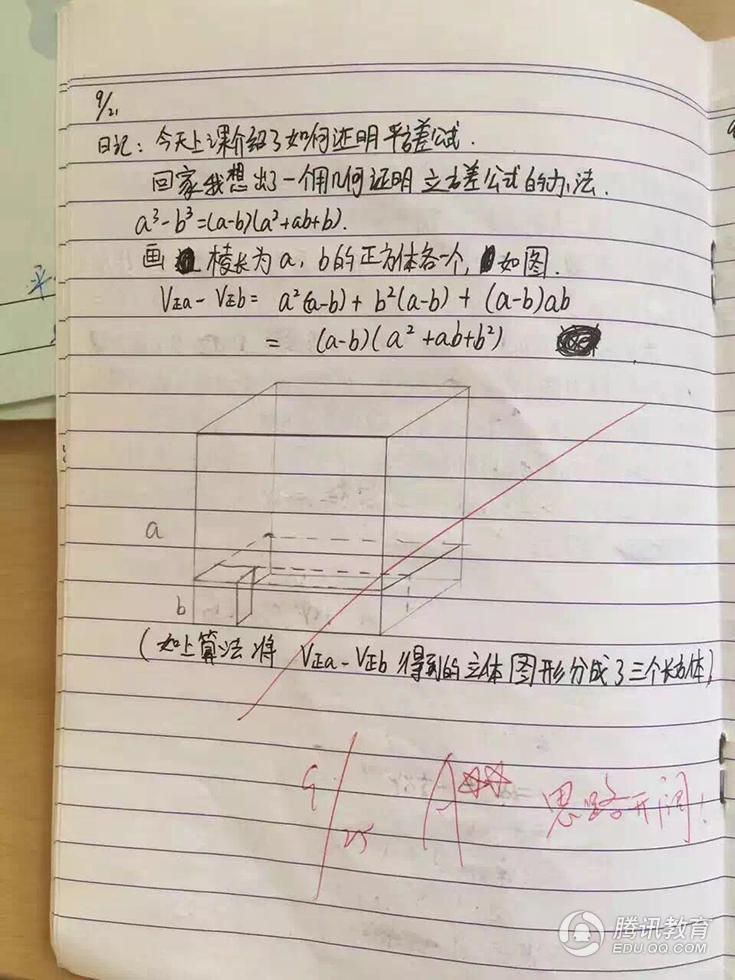 9/21
日记：今天上课介绍了如何证明平方差公式.
回家我想出了一个用几何证明立方差公式的办法.
a³-b³=(a-b)(a²+ab+b).
画 棱长为a，b的正方体各一个， 如图.
V正a - V正b = a²(a-b) + b²(a-b) + (a-b)ab
= (a-b)(a²+ab+b²)
a
b
(如上算法将 V正a - V正b 得到的立体图形分成了三个长方体)
9/25
思路开阔！
腾讯教育
EDU.QQ.COM